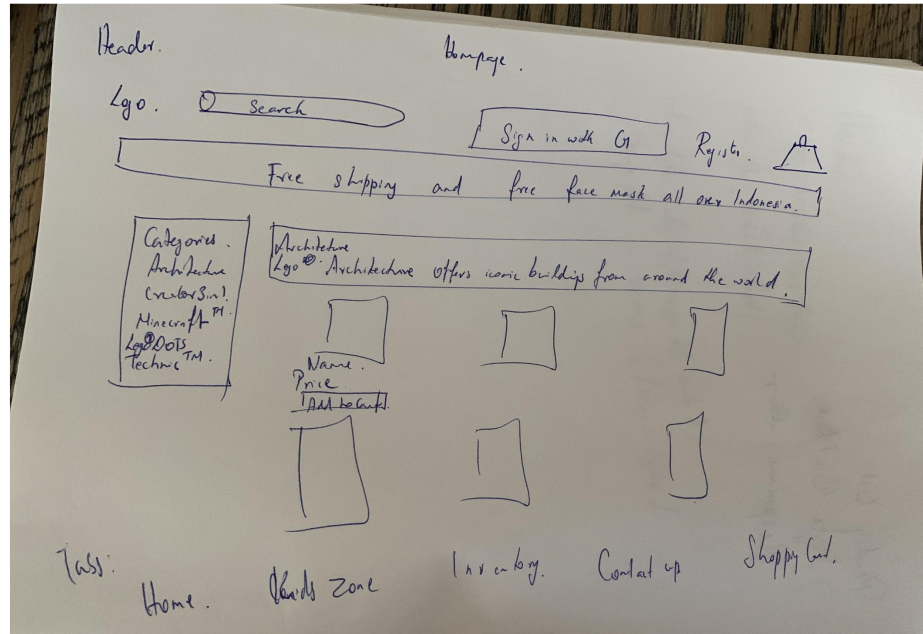 Header.
Homepage.
Logo.
Search
Sign in with G
Register.
Free shipping and free face mask all over Indonesia.
Categories.
Architecture
Creator 3 in 1
Minecraft TM.
Lego® DOTS
Technic TM.
Architecture
Lego® Architecture offers iconic buildings from around the world.
Name.
Price
Add to Cart.
Home.
Kids Zone
Inventory.
Contact us
Shopping Cart.